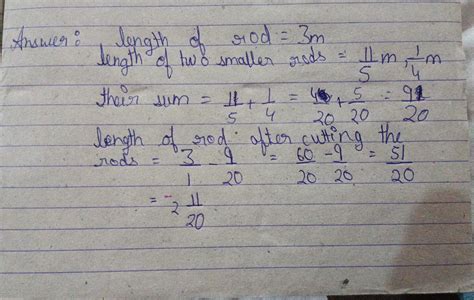 Answer: length of rod = 3m
length of two smaller rods = 11/5 m, 1/4 m
Their sum = 11/5 + 1/4 = 4/20 + 5/20 = 9/20
length of rod after cutting the
rods = 3/1 - 9/20 = 60/20 - 9/20 = 51/20
= 2 11/20